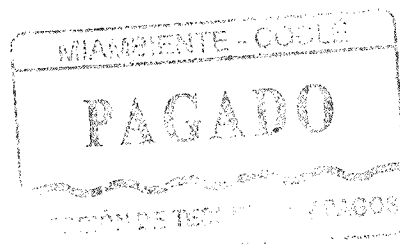 MIAMBIENTE - COCLÉ
PAGADO
DE
PAGOS